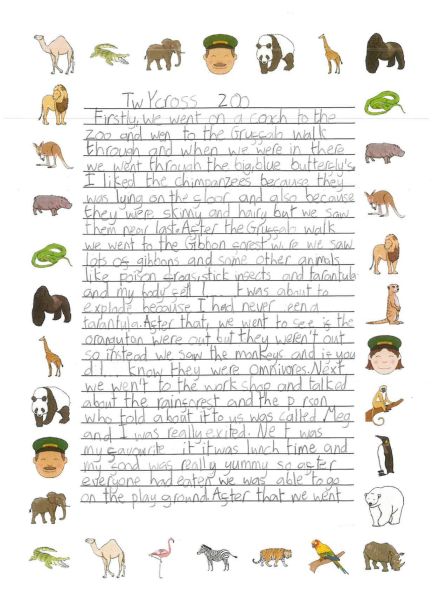 TwYcross Zoo
Firstly, we went on a coach to the
zoo and wen to the Gruffalo walk
through and when we were in there
we went through the big, blue butterfly's.
I liked the chimpanzees because they
was lying on the floor and also because
they were skinny and hairy but we saw
them near last. After the Gruffalo walk
we went to the Gibbon forest were we saw
lots of gibbons and some other animals
like poison frogs, stick insects and tarantula
and my body felt I was about to
explode because I had never een a
tarantula. After that, we went to see if the
orangutan were out but they weren't out
so instead we saw the monkeys and if you
d I know they were omnivores. Next
we wen't to the work shop and talked
about the rainforest and the p rson
who told about it to us was called Meg
and I was really exited. Ne t was
my favourite it it was lunch time and
my food was really yummy so after
everyone had eaten we was able to go
on the play ground. After that we went